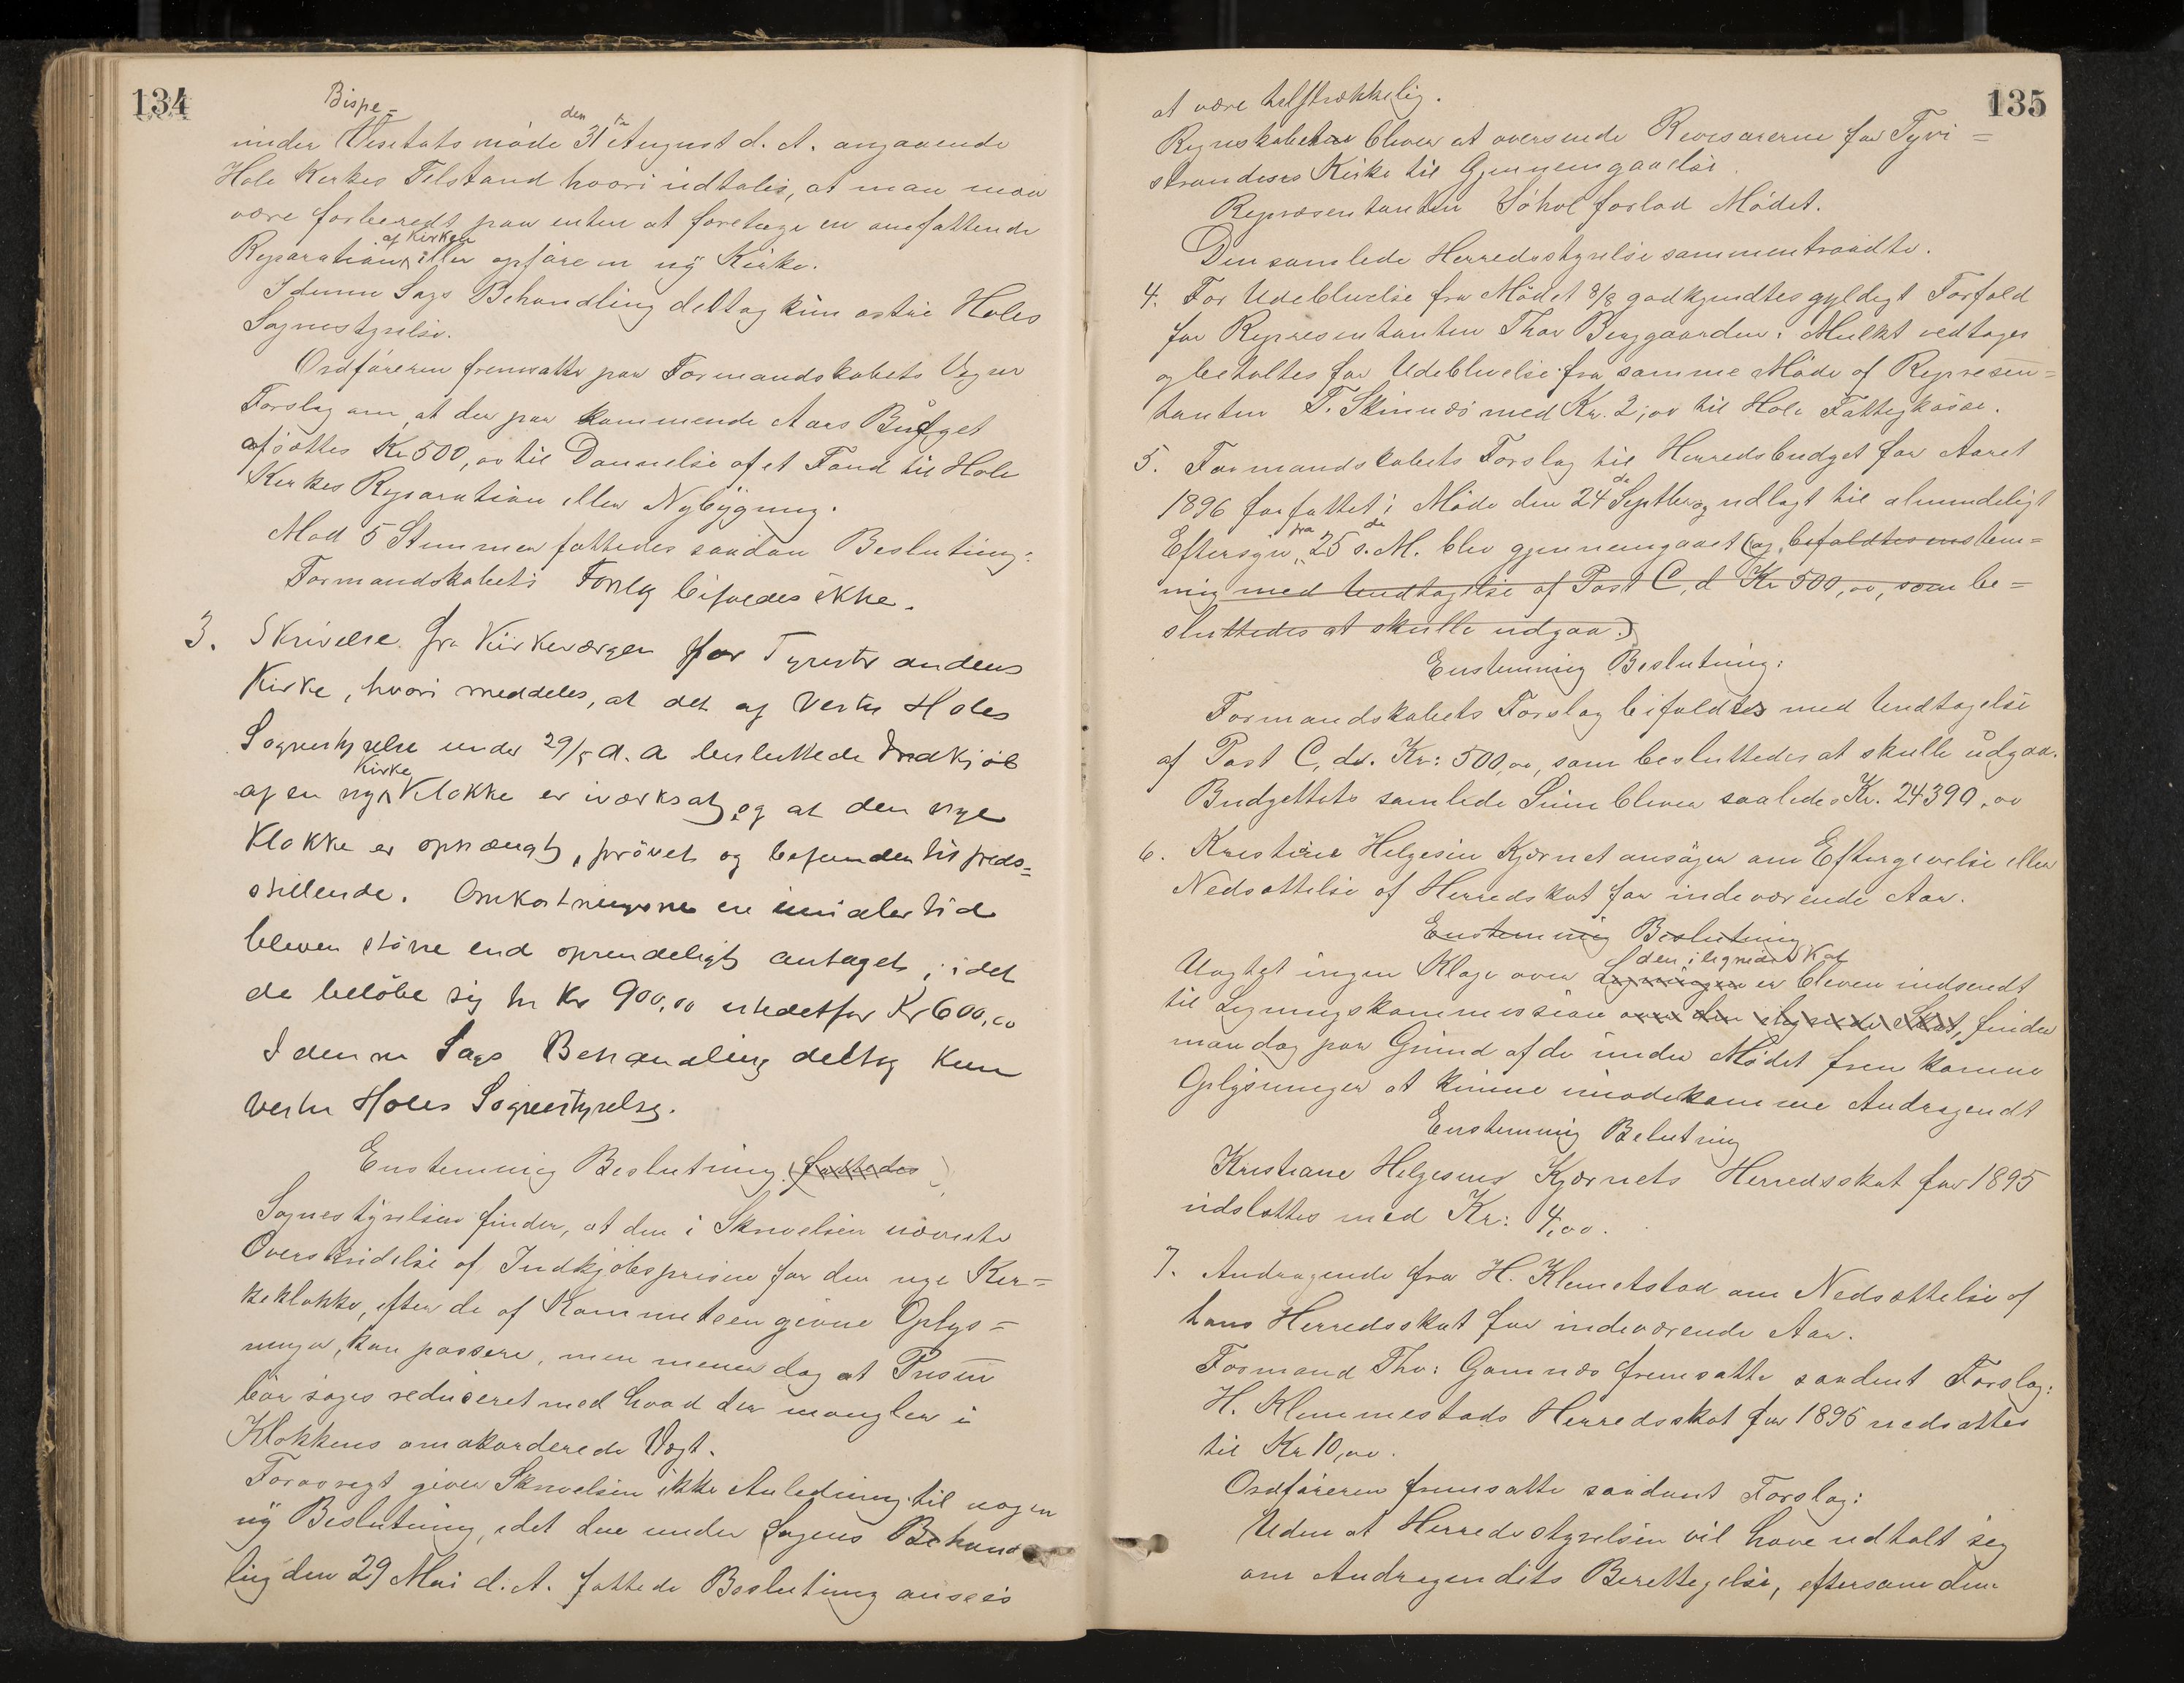 134
Bispe-
under Visitatsmöde den 31te August d. A. angaaende
Hole Kirkes Tilstand hvori udtales, at man maa
være forberedt paa enten at foretage en omfattende
Reparation af Kirken eller opføre en ny Kirke.
I denne Sags Behandling deltog kun østre Holes
Sognestyrelse.
Ordføreren fremsatte paa Formandskabets Vegne
Forslag om, at der paa kommende Aars Budget
afsættes Kr 500,00 til Dannelse af et Fond til Hole
Kirkes Reparation eller Nybygning.
Mod 5 Stemmer fattedes saadan Beslutning:
Formandskabets Forslag bifaldes ikke.
3. Skrivelse fra Kirkeværgen for Tyristrandens
Kirke, hvori meddeles, at det af Vestre Holes
Sognestyrelse under 29/5 d. a besluttede Indkjøb
af en ny Kirke Klokke er iværksat, og at den nye
Klokke er ophængt, prövet og befunden tilfreds=
stillende. Omkostningerne ere imidlertid
bleven större end oprindeligt antaget, idet
de belöbe sig til Kr 900,00 istedetfor Kr 600,00
I denne Sags Behandling deltog kun
Vestre Holes Sognestyrelse.
Enstemmig Beslutning (fattedes)
Sognestyrelsen finder, at den i Skrivelsen nævnte
Overskridelse af Indkjøbsprisen for den nye Kir=
keklokke, efter de af Kommiteen givne Oplys=
ninger, kan passere, men mener dog at Prisen
bør søges reduceret med hvad der mangler i
Klokkens omakorderede Vægt.
Forøvrigt giver Skrivelsen ikke Anledning til nogen
ny Beslutning, idet den under Sagens Behand
ling den 29 Mai d. A. fattede Beslutning ansees
135
at være tilstrækkelig.
Regnskaberne bliver at oversende Revisorerne for Tyri=
strandens Kirke til Gjennemgaaelse.
Repræsentanten Søhol forlod Mödet.
Den samlede Herredsstyrelse sammentraadte.
4. For Udeblivelse fra Mödet 8/8 godkjendtes gyldigt Forfald
for Repræsentanten Thor Berggaarden. Mulkt vedtages
og betaltes for Udeblivelse fra samme Möde af Repræsen=
tanten T. Skinnæs med Kr. 2,00 til Hole Fattigkasse.
5. Formandskabets Forslag til Herredsbudget for Aaret
1896 forfattet i Möde den 24de Septbr og udlagt til almindeligt
Eftersyn fra 25de s. M. blev gjennemgaaet (og bifaldtes enstem=
mig med Undtagelse af Post C, d Kr 500,00, som be=
sluttedes at skulle udgaa.)
Enstemmig Beslutning:
Formandskabets Forslag bifaldtes med Undtagelse
af Post C, d. Kr: 500,00, som besluttedes at skulle udgaa.
Budgettets samlede Sum bliver saaledes Kr. 24390,00
6. Kristiane Helgesen Kjærnet ansøger om Eftergivelse eller
Nedsættelse af Herredskat for indeværende Aar.
Enstemmig Beslutning
Uagtet ingen Klage over Ligningen den ilignede Skat er bleven indsendt
til Ligningskommissionen over den ilignede Skat, finder
man dog paa Grund af de under Mödet fremkomne
Oplysninger at kunne imødekomme Andragendet
Enstemmig Belutning
Kristiane Helgesens Kjærnets Herredsskat for 1895
udslettes med Kr: 4,00.
7. Andragende fra H. Klemetstad om Nedsættelse af
hans Herredsskat for indeværende Aar.
Formand Thv: Gomnæs fremsatte saadant Forslag:
H. Klemmestads Herredsskat for 1895 nedsættes
til Kr 10,00.
Ordføreren fremsatte saadant Forslag:
Uden at Herredsstyrelsen vil have udtalt sig
om Andragendets Berettigelse, eftersom den